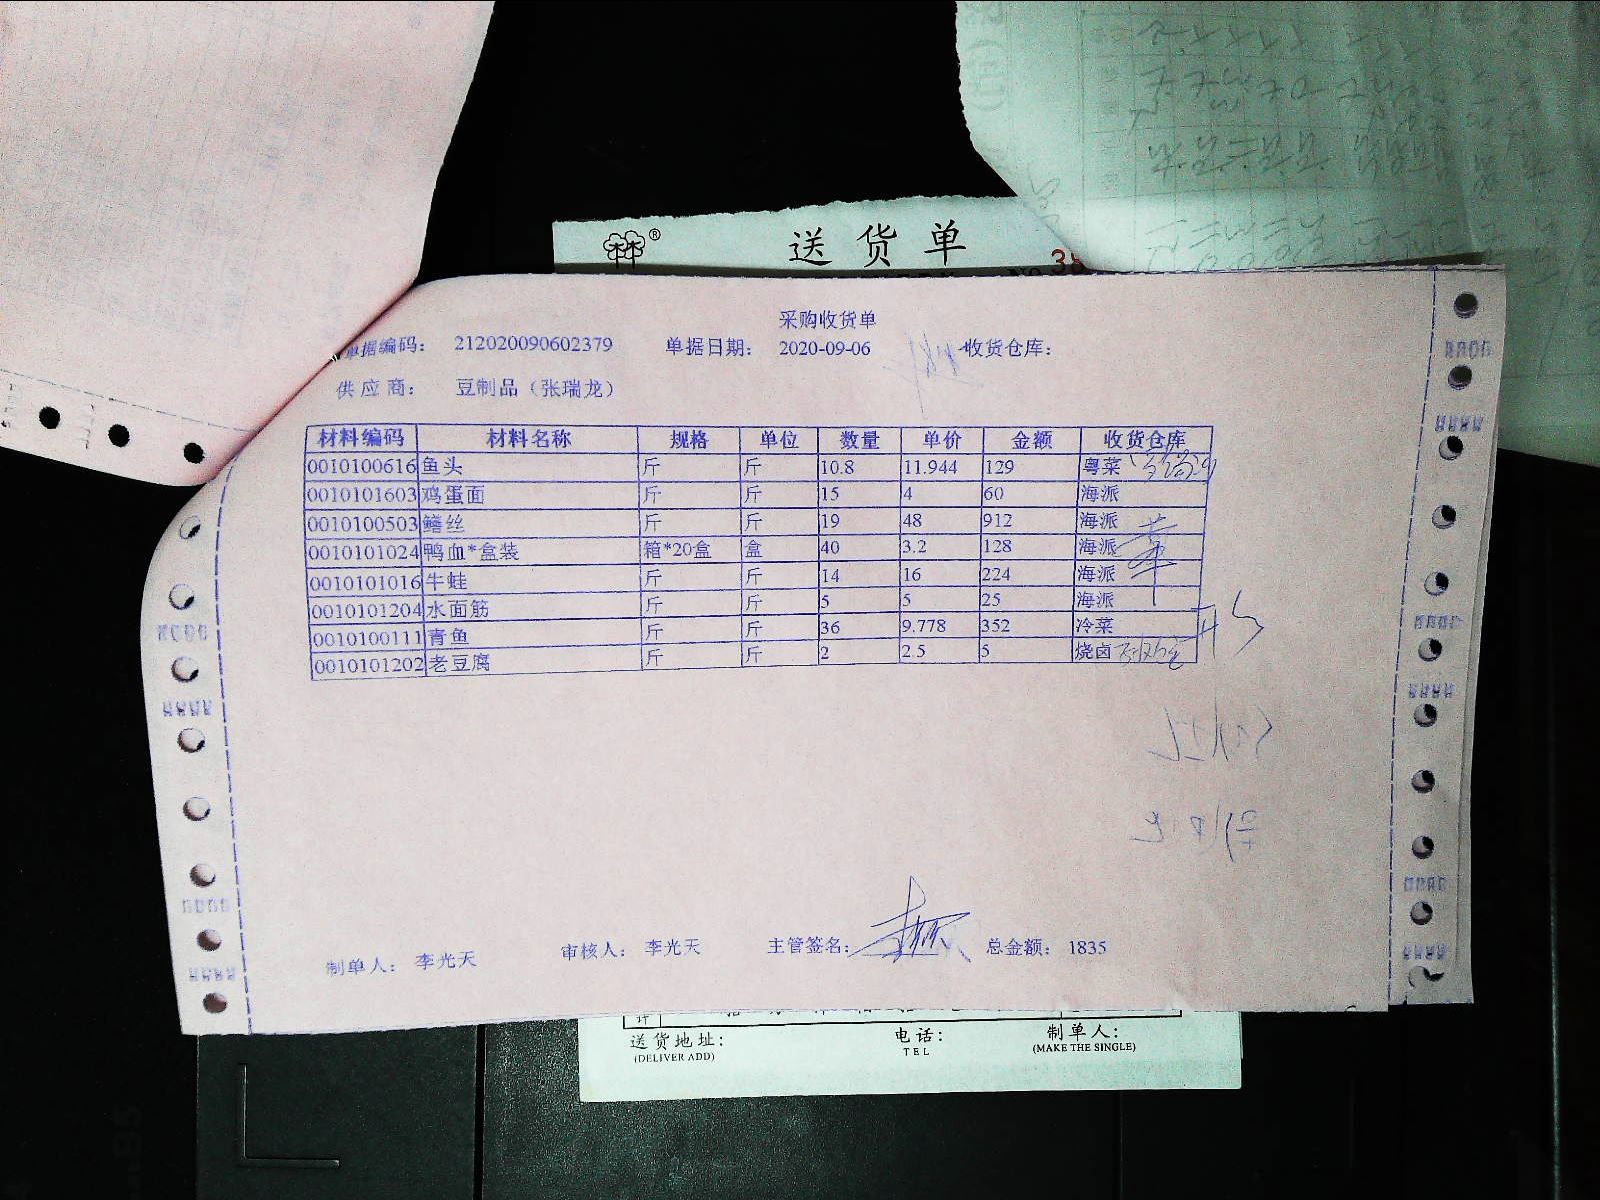 送货单
No 38
采购收货单
单据编码： 212020090602379 单据日期： 2020-09-06 收货仓库：
供应商： 豆制品（张瑞龙）
材料编码 材料名称 规格 单位 数量 单价 金额 收货仓库
0010100616 鱼头 斤 斤 10.8 11.944 129 粤菜
0010101603 鸡蛋面 斤 斤 15 4 60 海派
0010100503 鳝丝 斤 斤 19 48 912 海派
0010101024 鸭血*盒装 箱*20盒 盒 40 3.2 128 海派
0010101016 牛蛙 斤 斤 14 16 224 海派
0010101204 水面筋 斤 斤 5 5 25 海派
0010100111 青鱼 斤 斤 36 9.778 352 冷菜
0010101202 老豆腐 斤 斤 2 2.5 5 烧卤
制单人： 李光天 审核人： 李光天 主管签名： 总金额： 1835
送货地址： 电话： 制单人：
(DELIVER ADD) TEL (MAKE THE SINGLE)